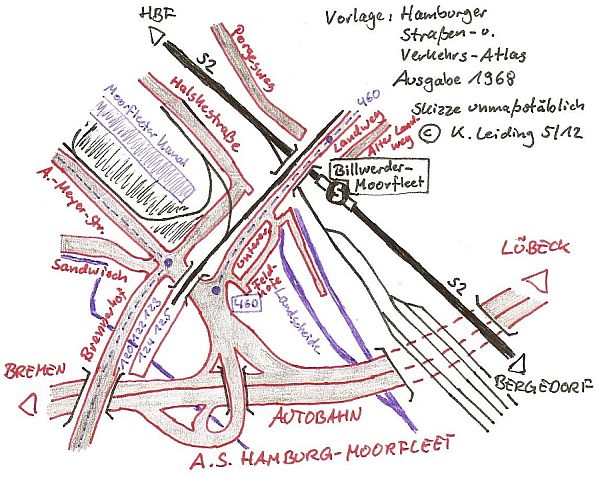 HBF
Vorlage: Hamburger
Straßen- u.
Verkehrs-Atlas
Ausgabe 1968
Skizze unmaßstäblich
© K. Leiding 5/12
S2
Porgesweg
Moorfleeter Kanal
Holskestraße
460
Landweg
Alter Land-
weg
Billwerder-
Moorfleet
S
A.-Meyer-Str.
Sandwisch
Unterer
Feld-
hofe
460
Landscheide
LÜBECK
S2
Brennerhof
120 122 123
124 125
BREMEN
BERGEDORF
AUTOBAHN
A.S. HAMBURG-MOORFLEET